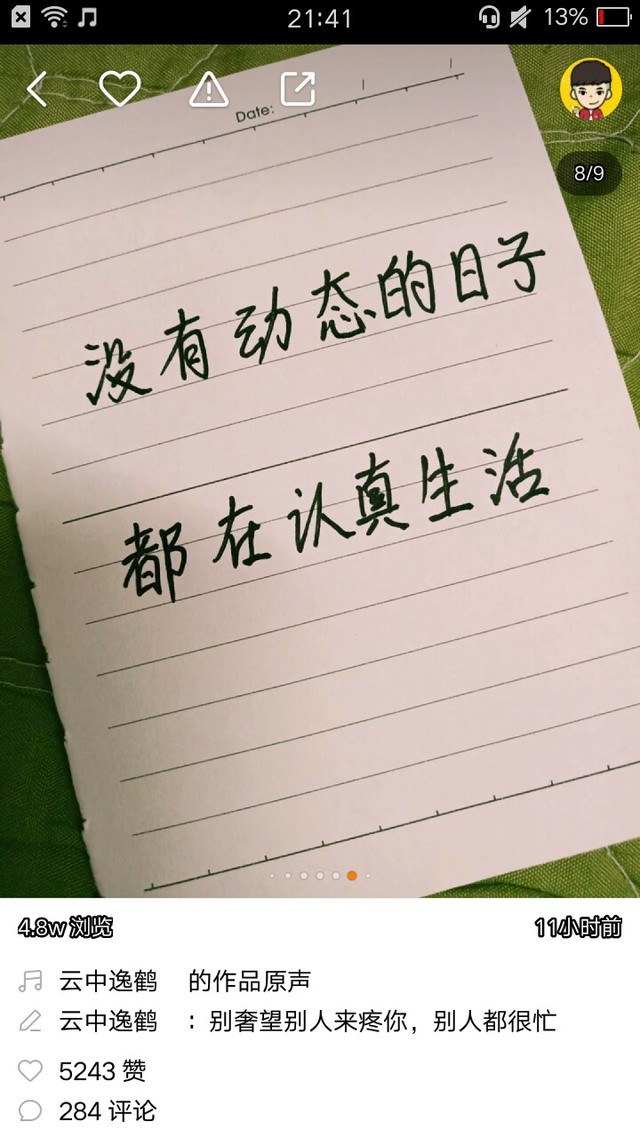 21:41
13%
Date:
8/9
没有动态的日子
都在认真生活
4.8w 浏览
11小时前
云中逸鹤 的作品原声
云中逸鹤 ：别奢望别人来疼你，别人都很忙
5243 赞
284 评论